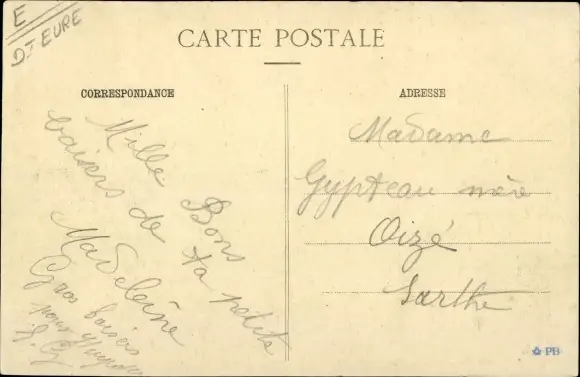 E
Dt EURE
CARTE POSTALE
CORRESPONDANCE
Mille Bons
baisers de ta petite
Madeleine
Gros baisers
pour
ADRESSE
Madame
Gypteau mère
Oizé
Sarthe
PB